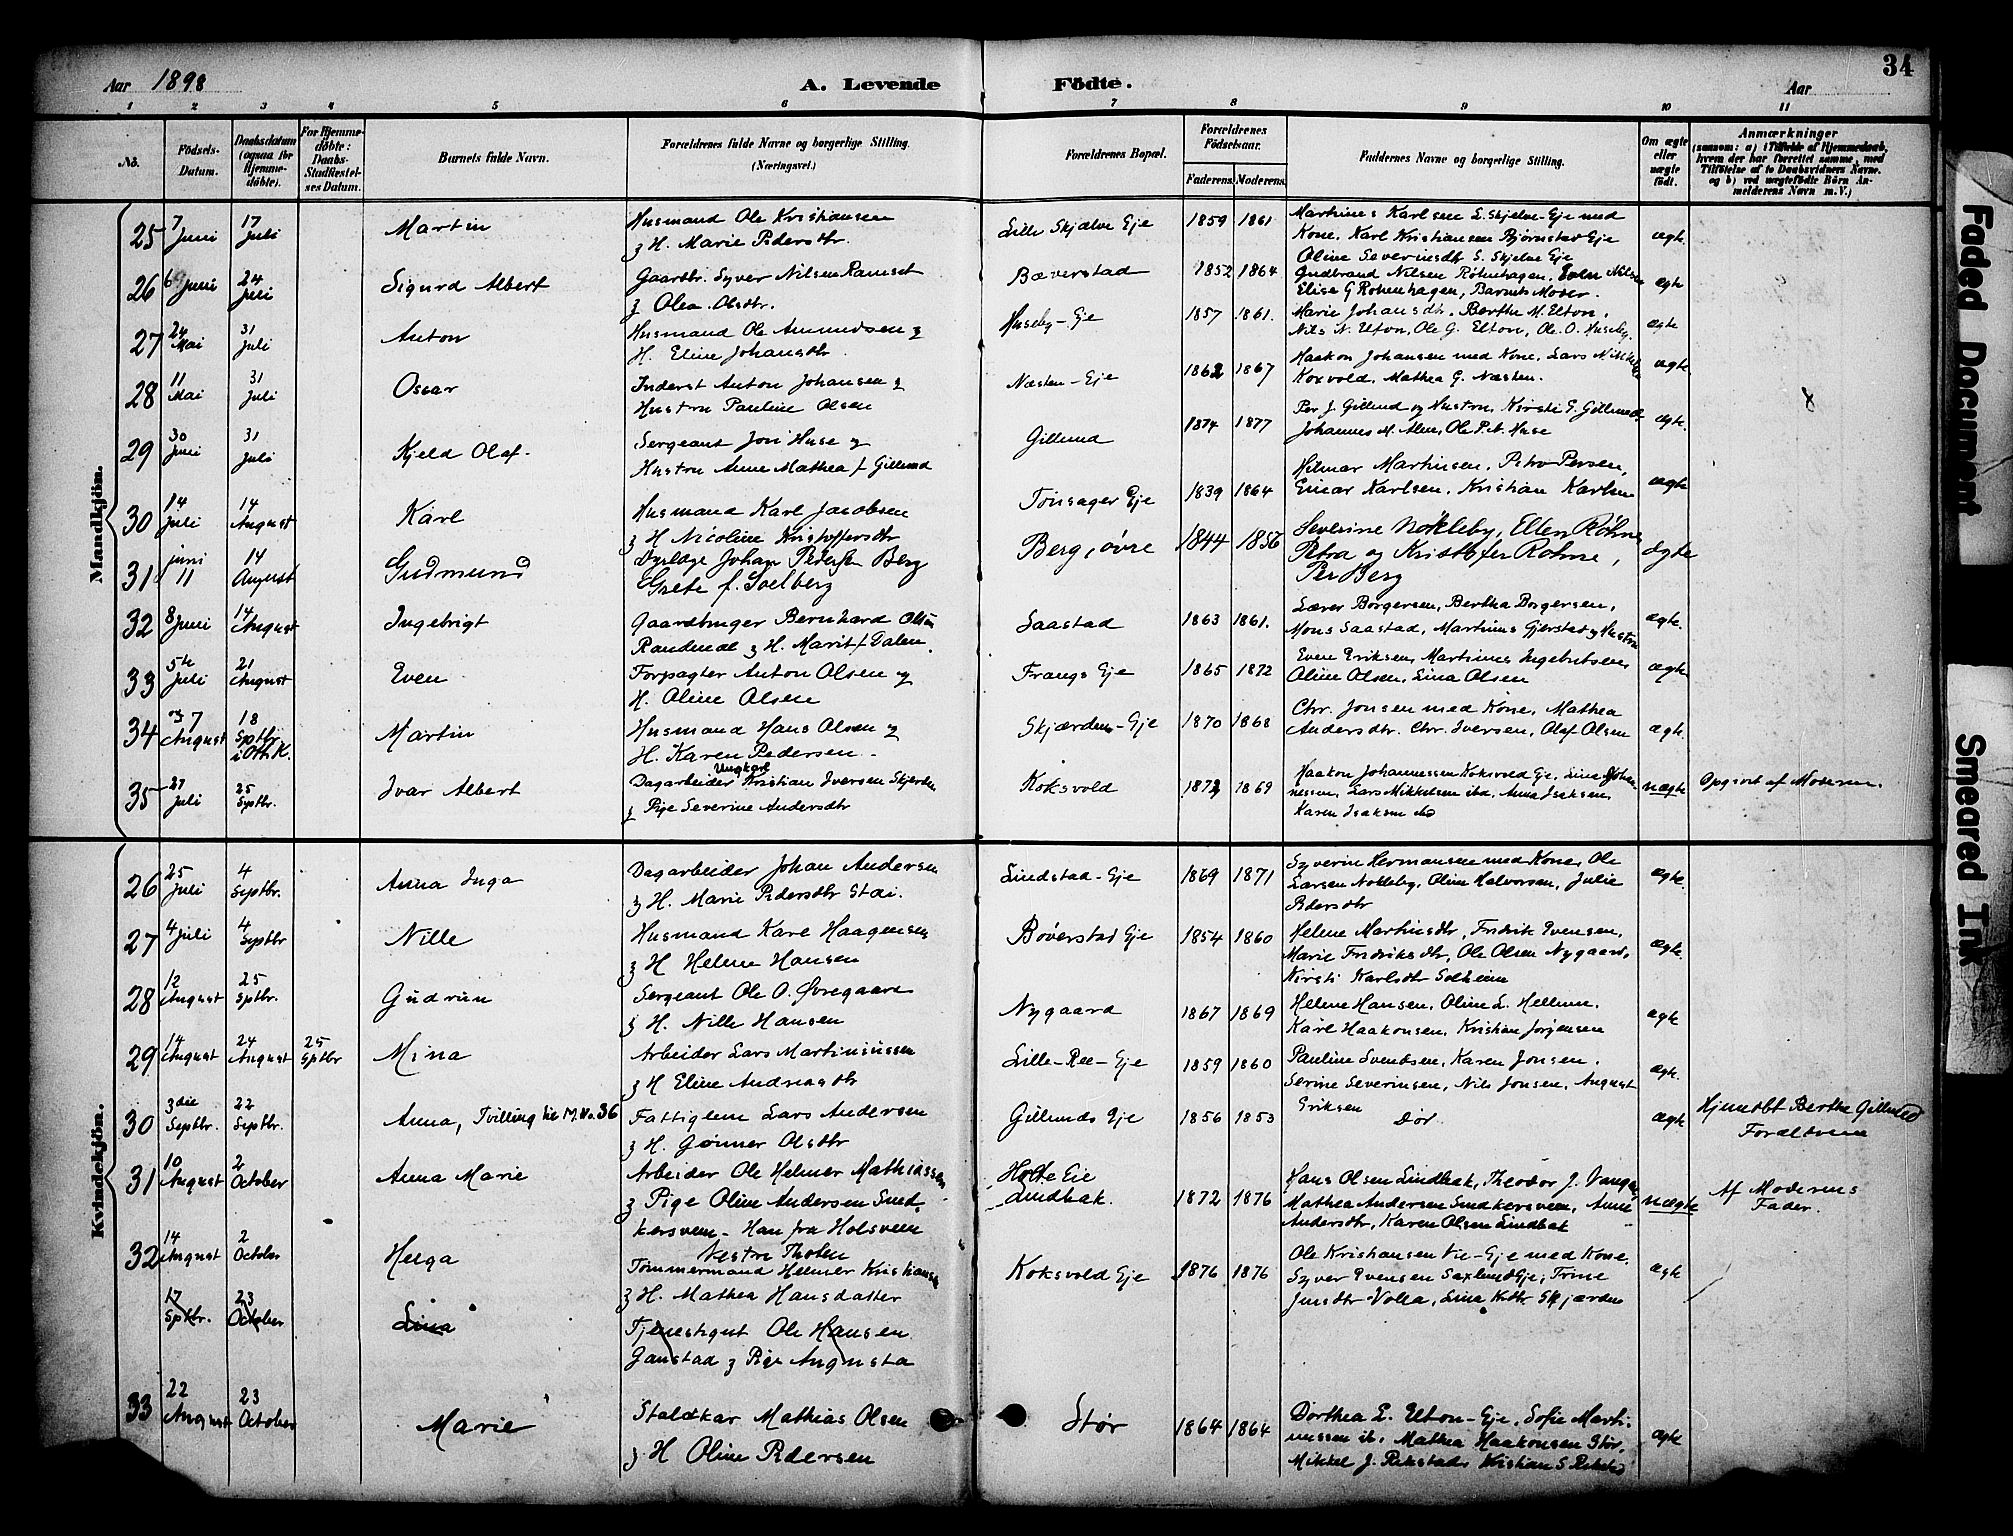 Aar 1898
A. Levende Födte.
Aar
34
1 2 3 4 5 6 7 8 9 10 11
No.
Födsels-Datum.
Daabsdatum (ogsaa for Hjemme-döbte).
For Hjemme-döbte: Daabs-Stadfæstel-ses Datum.
Barnets fulde Navn.
Forældrenes fulde Navne og borgerlige Stilling. (Næringsvei.)
Forældrenes Bopæl.
Forældrenes Födselsaar.
Faderens. Moderens.
Faddernes Navne og borgerlige Stilling.
Om ægte eller uægte födt.
Anmærkninger
(saasom: a) i Tilfælde af Hjemmedaab, hvem der har forrettet samme, med Tilföielse af to Daabsvidners Navne. og b) ved uægtefödte Börn An-melderens Navn m. V.)
Mandkjön.
25 7 Juni 17 Juli Martin Husmand Ole Kristiansen Lille Skjælve Eje 1859 1861 Martines Karlsen L. Skjelve-Eje med
& H. Marie Pedersdtr. Kone, Karl Kristiansen Bjørnstad Eje ægte
Oline Severinsdtr S. Skjelve Eje
26 6 Juni 24 Juli Sigurd Albert Gaardbr. Syver Nilsen Ramset Bæverstad 1852 1864 Gudbrand Nilsen Röhnhagen, Nilsen ægte
& Olea Olsdtr. Elise G Rohnhagen, Barnets Moder.
27 24 Mai 31 Juli Anton Husmand Ole Amundsen & Huseby-Eje 1857 1861. Marie Johansdtr, Berthe M. Elton,
H. Eline Johansdtr Nils N. Elton, Ole G. Elton, Ole O. Huseby. ægte
28 11 Mai 31 Juli Oscar Inderst Anton Johansen & Næsten-Eje 1862 1867 Haakon Johansen med Kone, Lars Mikkelsen ægte
Hustru Pauline Olsen Koxvold, Mathea G. Næsten.
29 30 Juni 31 Juli Kjeld Olaf. Sergeant Jon Huse og Gillund 1874 1877 Per J. Gillund og Hustru, Kirsti E. Gillund ægte.
Hustru Anne Mathea f. Gillund Johannes M. Alm, Ole P.b. Huse
30 14 Juli 14 August Karl Husmand Karl Jacobsen Tönsager Eje 1839 1864 Hilmar Martinsen, Petra Persen, ægte
& H Nicoline Kristoffersdtr Einar Karlsen, Kristian Karlsen
31 juni 11 14 August Gudmund Dyrlæge Johan Pedersen Berg Berg, øvre 1844 1856 Severine Nökleby, Ellen Röhne ægte
Grete f. Soelberg Petra og Kristofer Röhne,
Per Berg
32 8 Juni 14 August Ingebrigt Gaardbruger Bernhard Olsen Saastad 1863 1861. Lærer Borgersen, Bertha Borgersen, ægte.
Randmæl & H. Marit f. Dalen. Mons Saastad, Martinus Gjerstad og Hustru
33 5te Juli 21 August Even Forpagter Anton Olsen og Frangs Eje 1865 1872 Even Eriksen, Martines Ingebretsen ægte
H. Oline Olsen Oline Olsen, Lina Olsen
34 7 August 18 Sptbr. i Oth.K. Martin Husmand Hans Olsen og Skjærden-Eje 1870 1868 Chr. Jonsen med Kone, Mathea
H. Karen Pedersen Andersdtr. Chr. Iversen, Olaf Olsen ægte.
35 27 Juli 25 Sptbr. Ivar Albert Ungkarl
Dagarbeider Kristian Iversen Skjerden Koksvold 1873 1869 Haakon Johannessen Koksvold Eje, Lina Johan- uægte Opgivet af Moderen.
& Pige Severine Andersdtr nessen, Lars Mikkelsen ibd, Anna Isaksen,
Karen Isaksen ibd
Kvindekjön.
26 25 Juli 4 Septbr. Anna Inga Dagarbeider Johan Andersen Lindstad-Eje 1869 1871 Syverin Hermansen med Kone, Ole ægte.
& H. Marie Pedersdtr Stai. Larsen Nökleby, Oline Halvorsen, Julie
Pedersdtr
27 4 Juli 4 Septbr Nille Husmand Karl Haagensen Böverstad Eje 1854 1860 Helene Martinsdtr, Fredrik Evensen, ægte.
& H Helene Hansen Marie Fredriksdtr, Ole Olsen Nygaard,
Kirsti Karlsdtr Solheim
28 12 August 25 Sptbr. Gudrun Sergeant Ole O. Øvregaard Nygaard 1867 1869 Helene Hansen, Oline L. Hellum. ægte
& H. Nille Hansen Karl Haakonsen, Kristian Jorgensen
29 14 August 24 August 25 Sptbr Mina Arbeider Lars Martiniussen Lille-Ree-Eje 1859 1860 Pauline Svendsen, Karen Jonsen. ægte.
& H Eline Andreasdtr Serine Severinsen, Nils Jonsen, August
Eriksen
30 3die Septbr. 22 Septbr. Anna, Tvilling til M.No. 36 Fattiglem Lars Andersen Gillunds Eje 1856 1853 Dör. ægte Hjemdbt Berthe Gillund
& H. Gunner Olsdtr Forældrene
31 10 August 2 October Anna Marie Arbeider Ole Helmer Mathiassen Holte Eie 1872 1876 Hans Olsen Lindbak, Theodor J. Vangen,
& Pige Oline Andersen Smed- Lindbak. Mathea Andersen Smedkersveen, Anne uægte Af Moderens Fader.
kersveen - Han fra Holsveen Andersdtr, Karen Olsen Lindbak
Vestre Thoten
32 14 August 2 October Helga Tömmermand Helmer Kristiansen Koksvold Eje 1876 1876 Ole Kristiansen Vie-Eje med Kone. ægte
& H. Mathea Hansdatter Syver Evensen Saxlund Eje, Trine
Jensdtr Volla, Lina Krdtr Skjærden
17 Sptbr. 23 October Lina Tjenestegut Ole Hansen
Gaustad & Pige Augusta
33 22 August 23 October Marie Staldkar Mathias Olsen Stör 1864 1864 Dorthea E. Elton-Eje, Sofie Marti-
& H Oline Pedersen nussen ib., Mathea Haakonsen Stör, ægte
Mikkel J. Rekstad, Kristian S Rekstad
Faded Document
Smeared Ink